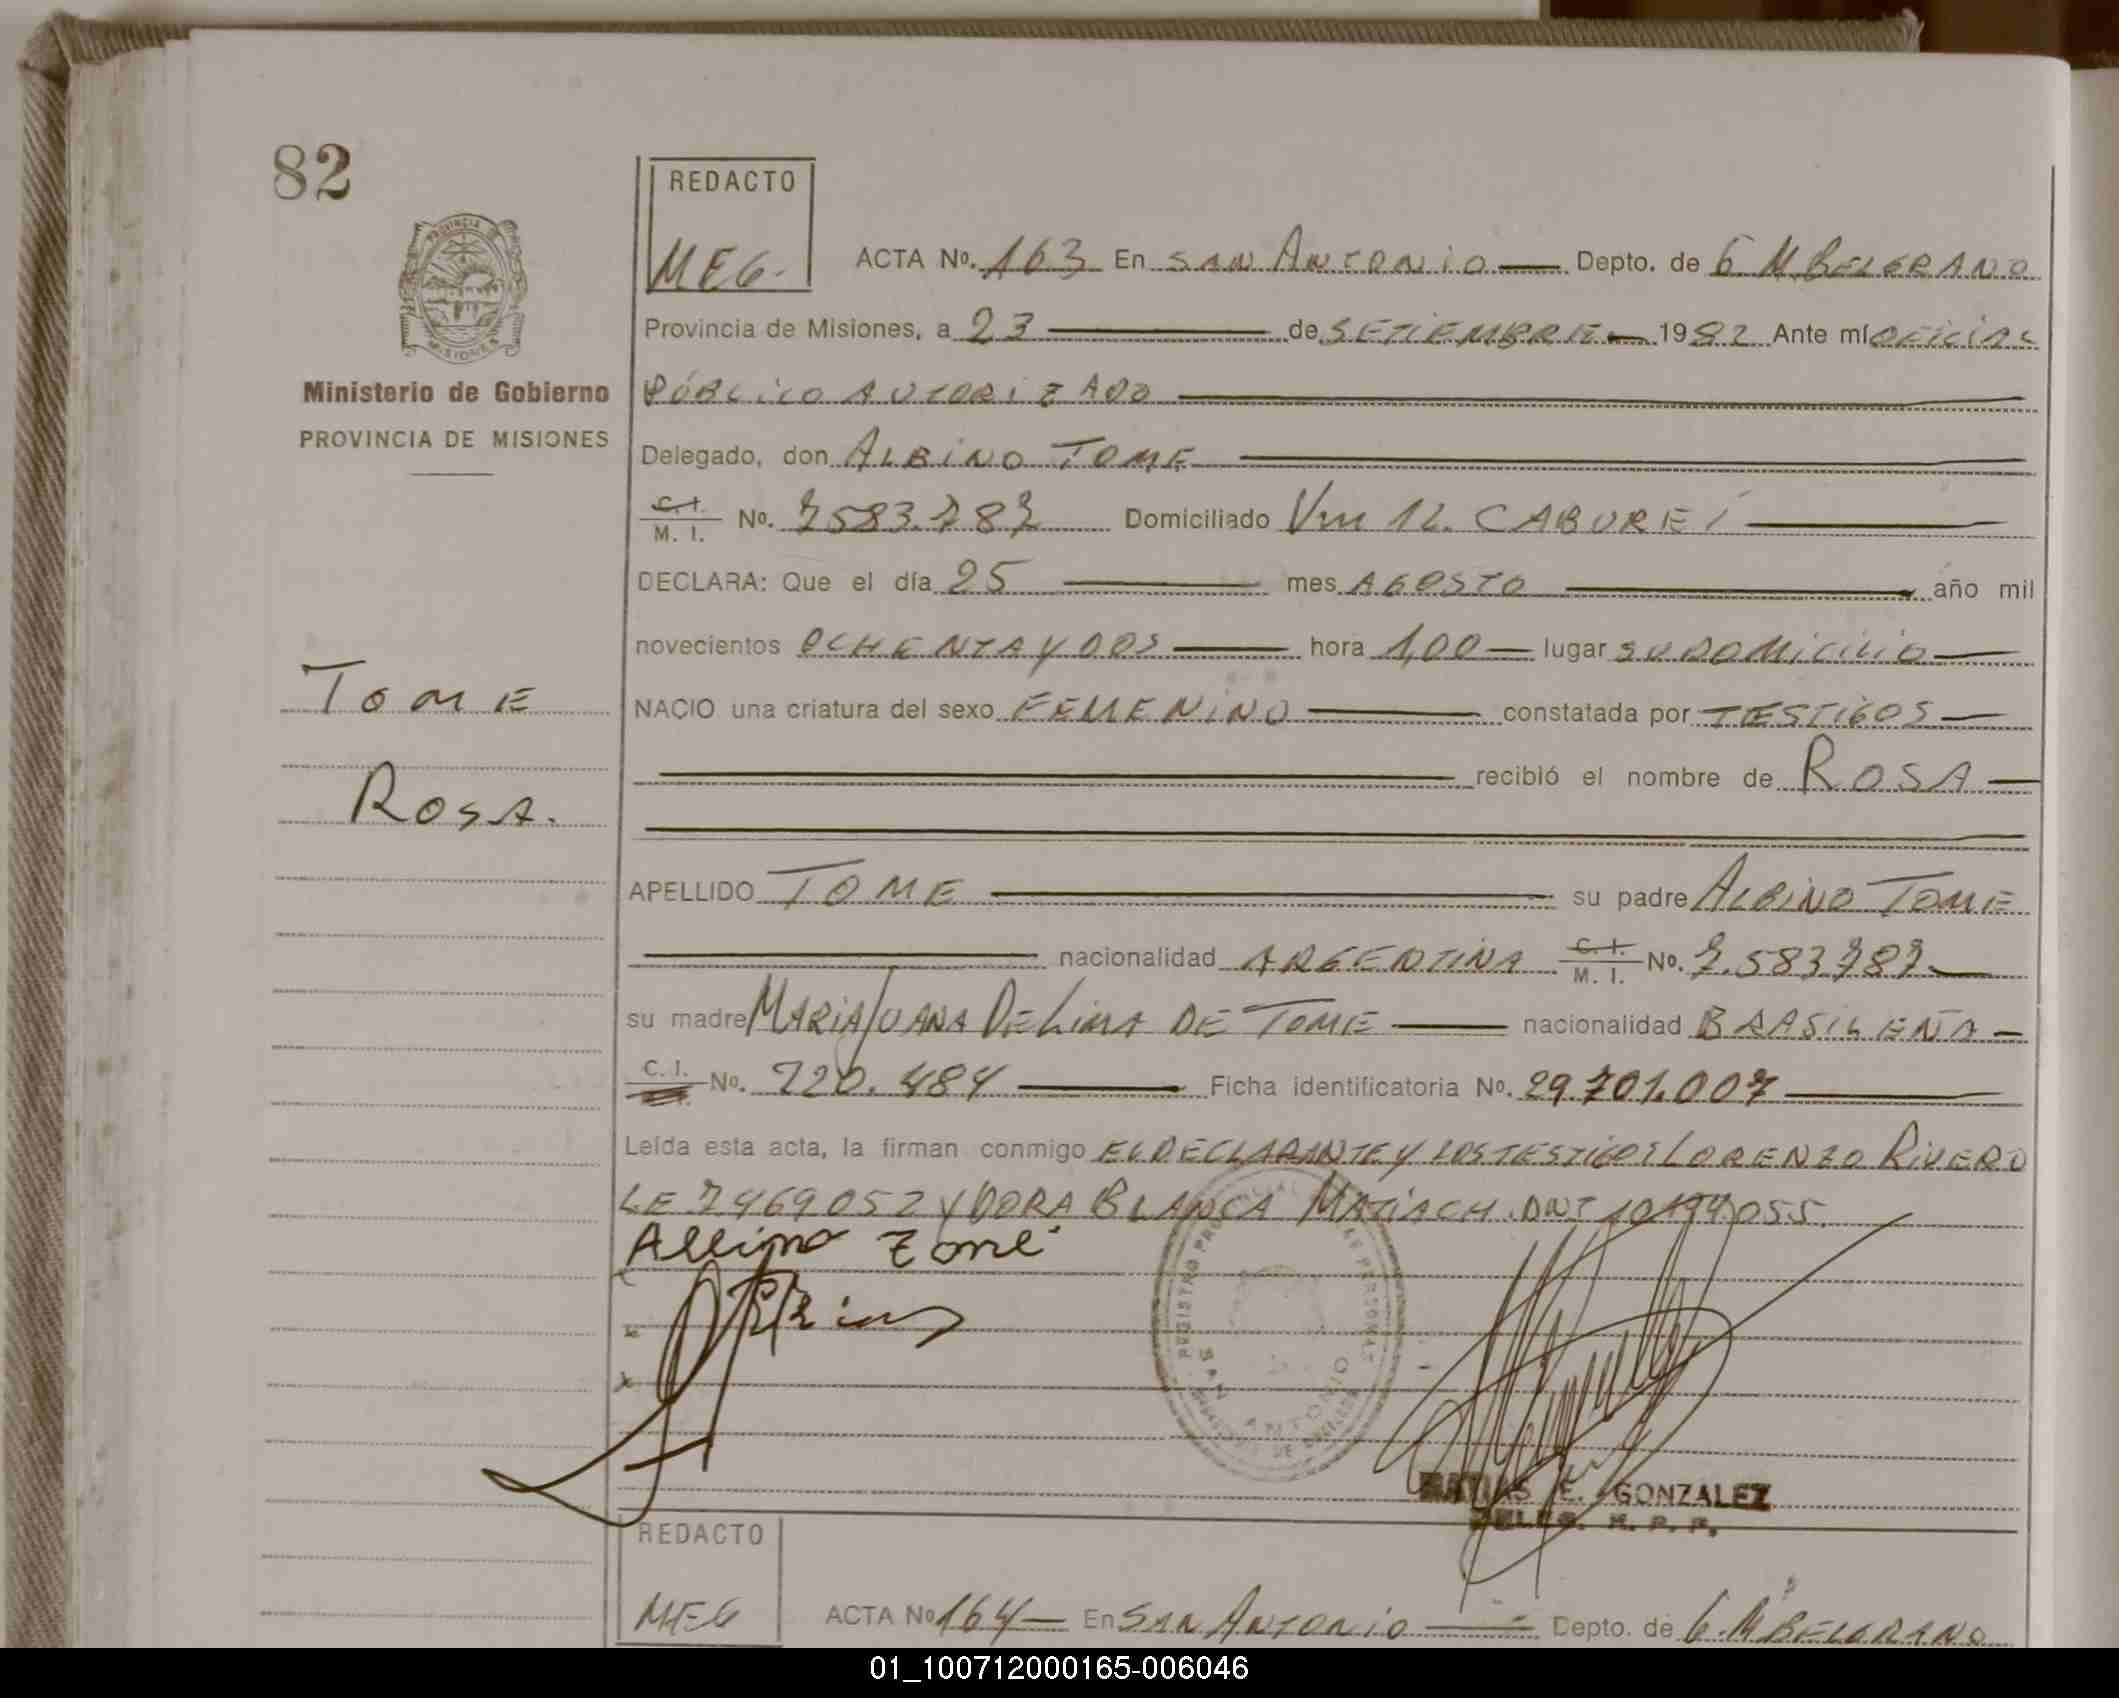 82
REDACTO
MEG.
ACTA Nº. 163 En SAN ANTONIO Depto. de G M. BELGRANO
Provincia de Misiones, a 23 de SETIEMBRE 1982 Ante mí OFICIAL
PÚBLICO AUTORIZADO
PROVINCIA DE
MISIONES
Ministerio de Gobierno
PROVINCIA DE MISIONES
Delegado, don ALBINO TOME
C. I.
M. I. Nº. 7583.787 Domiciliado Km 12. CABUREÍ
DECLARA: Que el día 25 mes AGOSTO año mil
novecientos OCHENTA Y DOS hora 1,00 lugar SU DOMICILIO
TOME
NACIO una criatura del sexo FEMENINO constatada por TESTIGOS
recibió el nombre de ROSA
ROSA.
APELLIDO TOME su padre ALBINO TOME
nacionalidad ARGENTINA C. I. M. I. Nº. 7.583787
su madre MARIA JUANA DE LIMA DE TOME nacionalidad BRASILEÑA
C. I. Nº. 720.484 Ficha identificatoria Nº. 29.701.007
Leída esta acta, la firman conmigo EL DECLARANTE Y LOS TESTIGOS LORENZO RIVERO
LE 7469052 Y DORA BLANCA MATIACH. DNI 10199055.
Albino Tomé
REGISTRO PROVINCIAL DE LAS PERSONAS
SAN ANTONIO
E. GONZALEZ
DELEG. R. P. P.
REDACTO
MEG
ACTA Nº 164 En SAN ANTONIO Depto. de G. M. BELGRANO
01_100712000165-006046